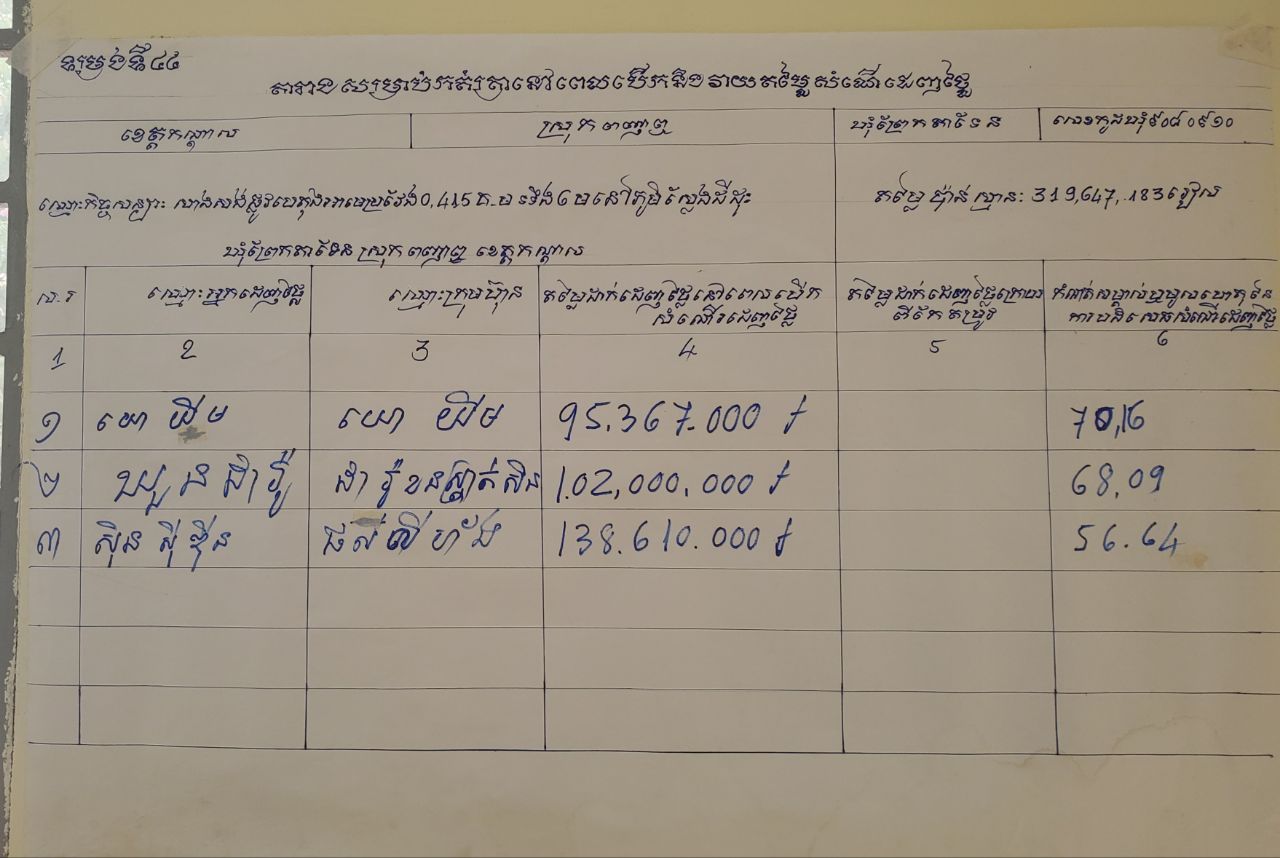 ទម្រង់ទី៤៤
តារាងសម្រាប់កត់ត្រានៅពេលបើកនិងវាយតម្លៃសំណើដេញថ្លៃ
ខេត្តកណ្តាល
ស្រុកពញាឮ
ឃុំព្រែកតាទែន
លេខកូដឃុំ៩០៨០៩១០
ឈ្មោះកិច្ចសន្យា: សាងសង់ផ្លូវបេតុងអាមេប្រវែង0,415គ.ម ទទឹង6មនៅភូមិស្លែងជីដុះ
តម្លៃប៉ាន់ស្មាន: 319,647,183រៀល
ឃុំព្រែកតាទែន ស្រុកពញាឮ ខេត្តកណ្តាល
ល.រ
ឈ្មោះអ្នកដេញថ្លៃ
ឈ្មោះក្រុមហ៊ុន
តម្លៃដាក់ដេញថ្លៃនៅពេលបើក
សំណើរដេញថ្លៃ
តម្លៃដាក់ដេញថ្លៃក្រោយ
ពីកែតម្រូវ
កំណត់សម្គាល់ឬមូលហេតុនៃ
ការបដិសេធសំណើដេញថ្លៃ
1
2
3
4
5
6
១
ហោ យីម
ហោ យីម
95.367.000 ៛
70,16
២
ឃួន ដារ៉ូ
ដារ៉ូខនស្ត្រាក់សិន
102,000,000 ៛
68,09
៣
ស៊ិន ស៊ីដ៊ីន
ផល់លីហ័ង
138.610.000 ៛
56.64